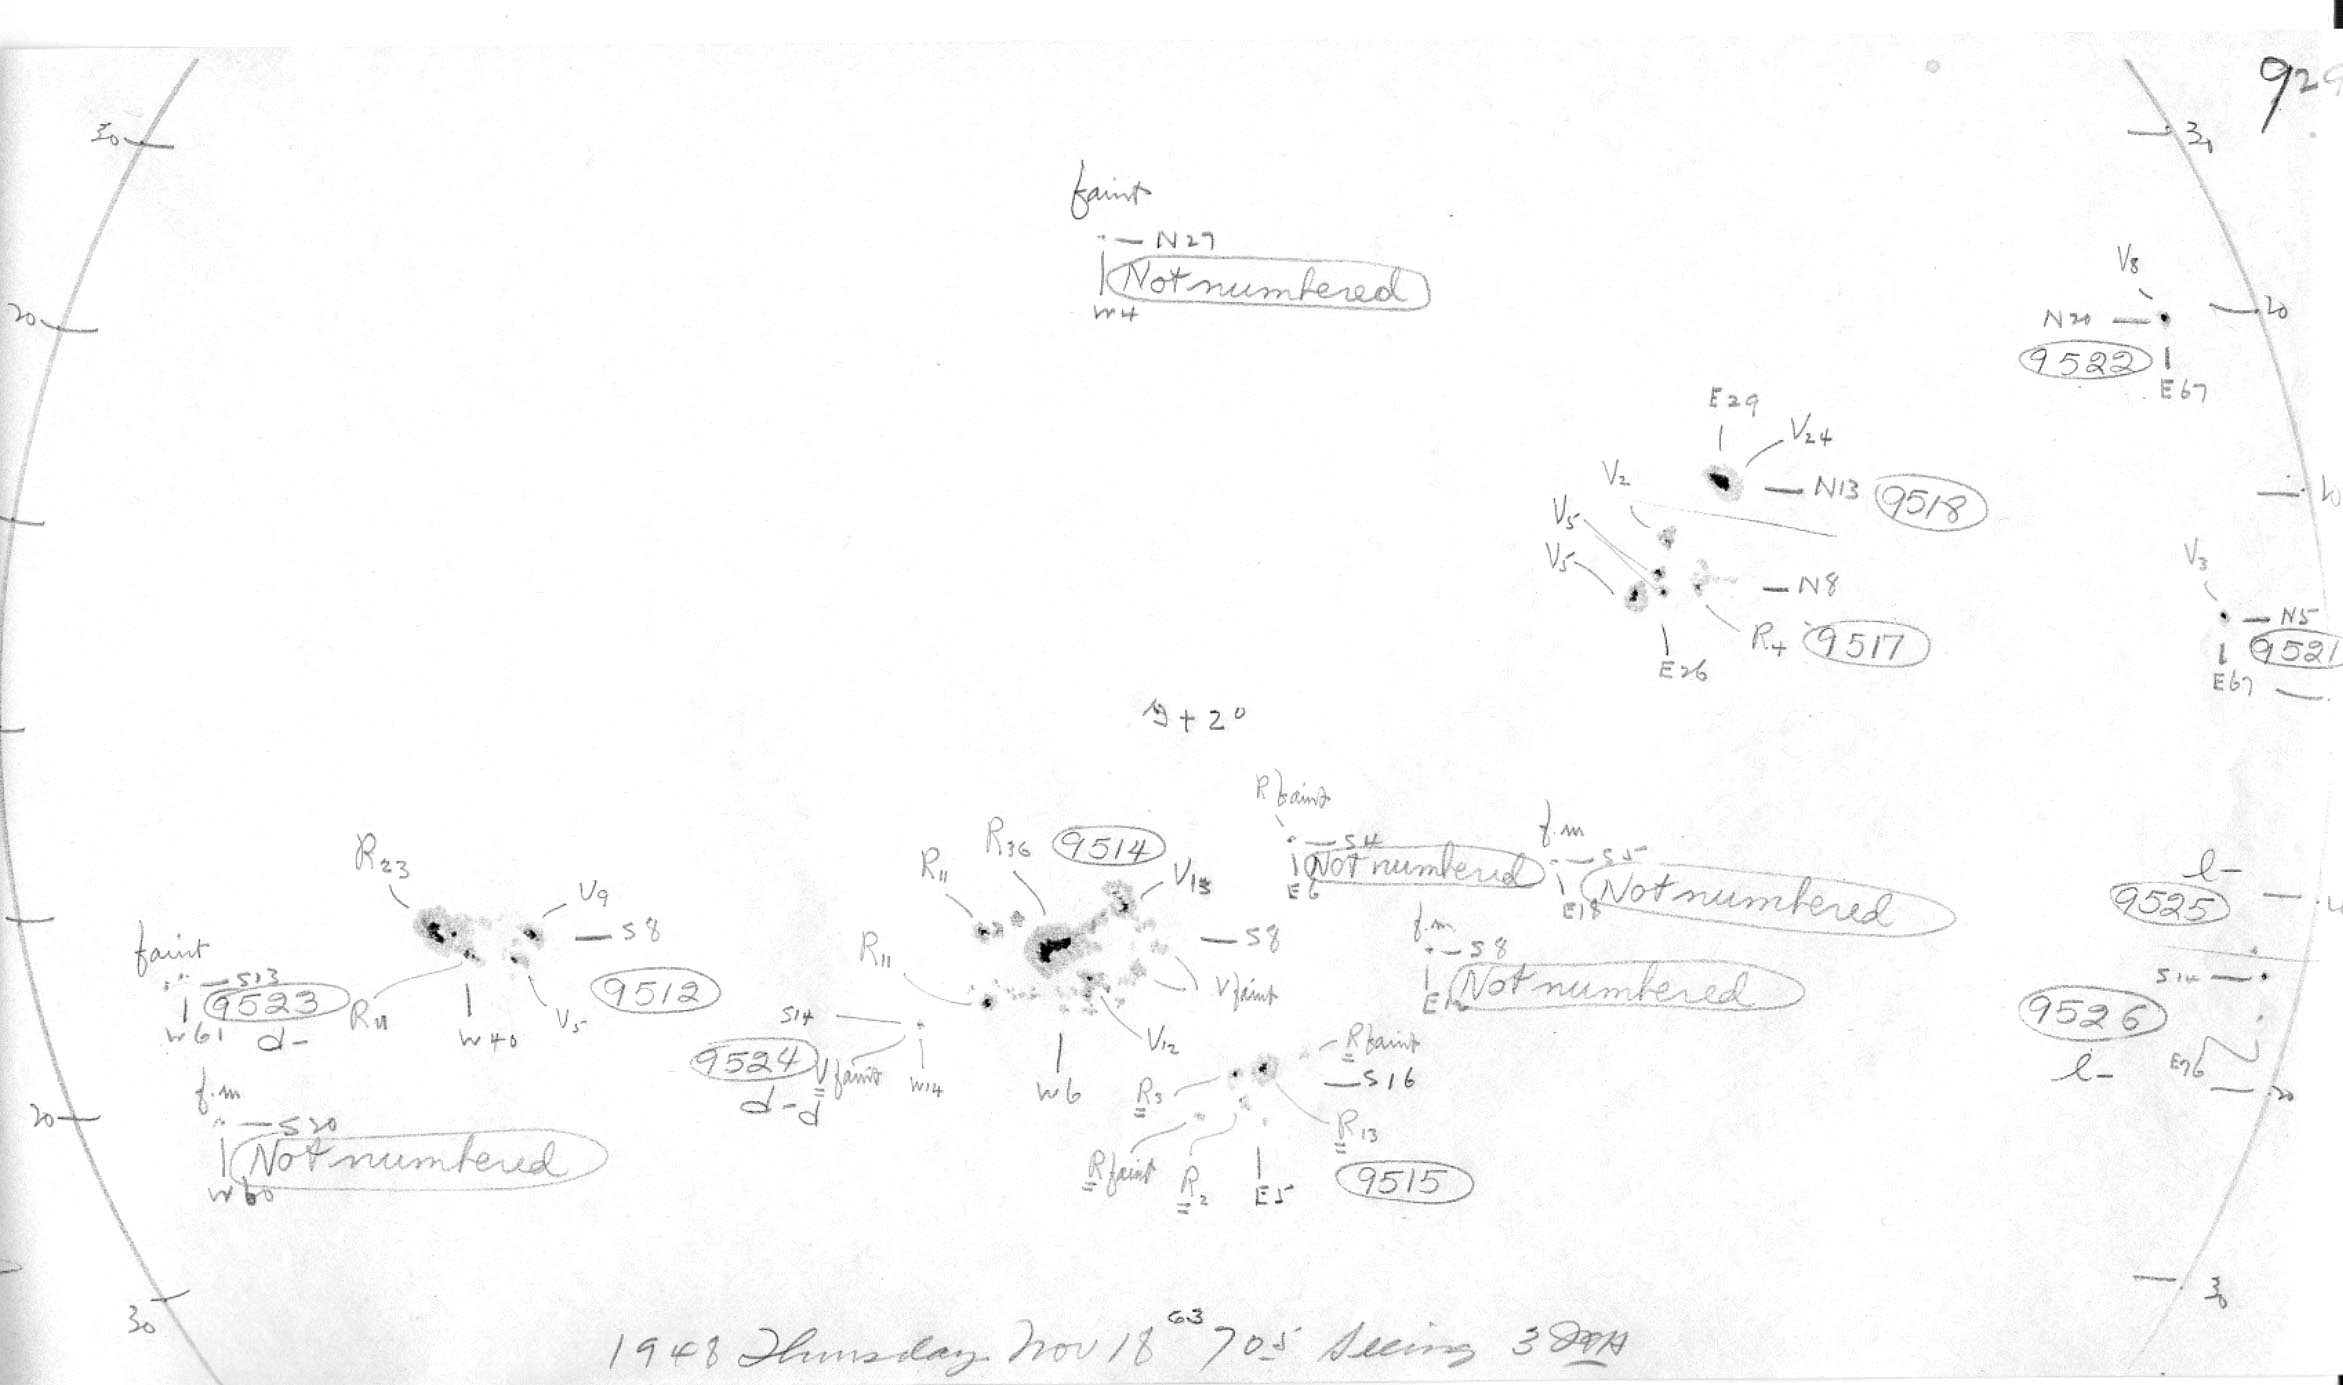 929
30
30
faint
N27
Not numbered
W4
V8
20
20
N20
9522
E67
E29
V24
V2
N13
9518
V5
V5
10
N8
R4
9517
E26
V3
N5
9521
E67
+ 2°
R faint
S4
Not numbered
E6
f.m
S5
Not numbered
E18
R23
V9
S8
R11
W40
V5
9512
R36
9514
R11
V13
S8
R11
V faint
V12
W6
f.m
S8
Not numbered
l-
9525
S14
9526
E76
l-
20
faint
S13
9523
W61
d-
S14
9524
V faint
W14
d-d
R faint
S16
R3
R13
R faint
R2
E5
9515
f.m
20
S20
Not numbered
W60
30
30
1948 Thursday Nov 18 .63 705 Seeing 3